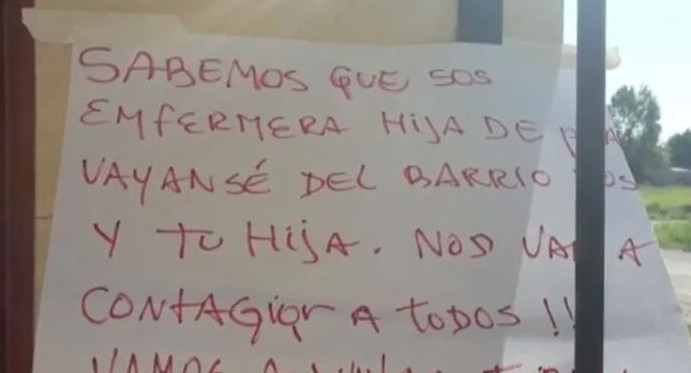 SABEMOS QUE SOS
ENFERMERA HIJA DE
VAYANSÉ DEL BARRIO
Y TU HIJA. NOS VAN A
CONTAGIAR A TODOS!!
VAMOS A